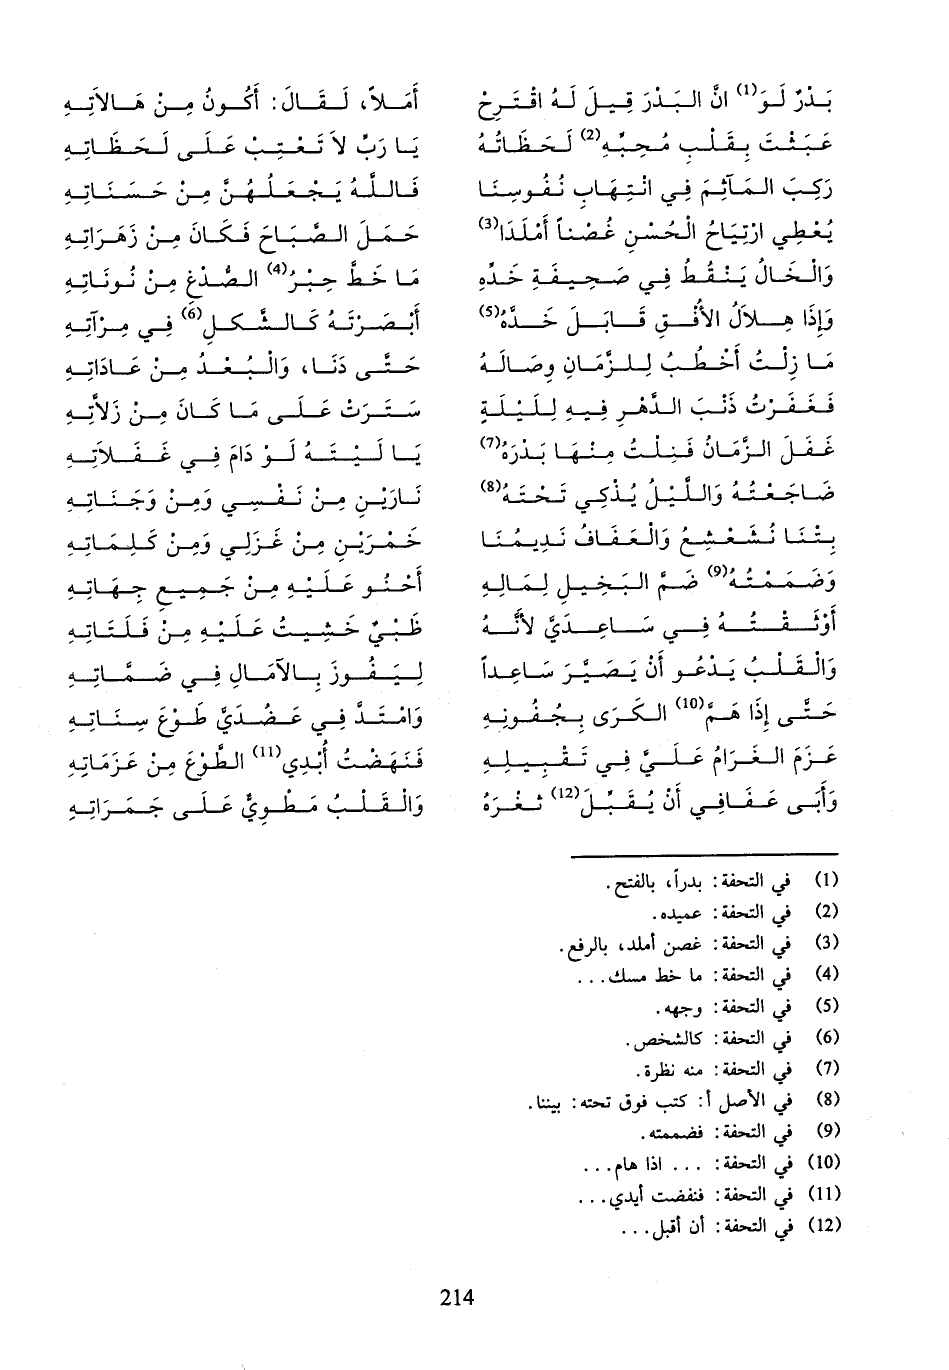 بَدْرٌ لَوْ(1) انَّ الْبَدْرَ قِيلَ لَهُ اقْتَرِحْ أَمَلاً، لَقَالَ: أَكُونُ مِنْ هَالاَتِهِ
عَبَثَتْ بِقَلْبِ مُحِبِّهِ(2) لَحَظَاتُهُ يَا رَبِّ لاَ تَعْتِبْ عَلَى لَحَظَاتِهِ
رَكِبَ الْمَآثِمَ فِي انْتِهَابِ نُفُوسِنَا فَاللَّهُ يَجْعَلُهُنَّ مِنْ حَسَنَاتِهِ
يُعْطِي ارْتِيَاحَ الْحُسْنِ غُصْناً أَمْلَدَا(3) حَمَلَ الصَّبَاحَ فَكَانَ مِنْ زَهَرَاتِهِ
وَالْخَالُ يَنْقُطُ فِي صَحِيفَةِ خَدِّهِ مَا خَطَّ حِبْرُ(4) الصُّدْغِ مِنْ نُونَاتِهِ
وَإِذَا هِلاَلُ الأُفْقِ قَابَلَ خَدَّهُ(5) أَبْصَرْتَهُ كَالشَّكْلِ(6) فِي مِرْآتِهِ
مَا زِلْتُ أَخْطُبُ لِلزَّمَانِ وِصَالَهُ حَتَّى دَنَا، وَالْبُعْدُ مِنْ عَادَاتِهِ
فَغَفَرْتُ ذَنْبَ الدَّهْرِ فِيهِ لِلَيْلَةٍ سَتَرَتْ عَلَى مَا كَانَ مِنْ زَلاَّتِهِ
غَفَلَ الزَّمَانُ فَنِلْتُ مِنْهَا بَدْرَهُ(7) يَا لَيْتَهُ لَوْ دَامَ فِي غَفَلاَتِهِ
ضَاجَعْتُهُ وَاللَّيْلُ يُذْكِي تَحْتَهُ(8) نَارَيْنِ مِنْ نَفَسِي وَمِنْ وَجَنَاتِهِ
بِتْنَا نُشَعْشِعُ وَالْعَفَافُ نَدِيمُنَا خَمْرَيْنِ مِنْ غَزَلِي وَمِنْ كَلِمَاتِهِ
وَضَمَمْتُهُ(9) ضَمَّ الْبَخِيلِ لِمَالِهِ أَحْنُو عَلَيْهِ مِنْ جَمِيعِ جِهَاتِهِ
أَوْثَقْتُهُ فِي سَاعِدَيَّ لأَنَّهُ ظَبْيٌ خَشِيتُ عَلَيْهِ مِنْ فَلَتَاتِهِ
وَالْقَلْبُ يَدْعُو أَنْ يُصَيَّرَ سَاعِداً لِيَفُوزَ بِالآمَالِ فِي ضَمَّاتِهِ
حَتَّى إِذَا هَمَّ(10) الْكَرَى بِجُفُونِهِ وَامْتَدَّ فِي عَضُدَيَّ طَوْعَ سِنَاتِهِ
عَزَمَ الْغَرَامُ عَلَيَّ فِي تَقْبِيلِهِ فَنَهَضْتُ أَيْدِي(11) الطَّوْعِ مِنْ عَزَمَاتِهِ
وَأَبَى عَفَافِي أَنْ يُقَبِّلَ(12) ثَغْرَهُ وَالْقَلْبُ مَطْوِيٌّ عَلَى جَمَرَاتِهِ
(1) في التحفة: بدراً، بالفتح.
(2) في التحفة: عميده.
(3) في التحفة: غصن أملد، بالرفع.
(4) في التحفة: ما خط مسك...
(5) في التحفة: وجهه.
(6) في التحفة: كالشخص.
(7) في التحفة: منه نظرة.
(8) في الأصل أ: كتب فوق تحته: بيننا.
(9) في التحفة: فضممته.
(10) في التحفة: ... اذا هام...
(11) في التحفة: فنفضت أيدي...
(12) في التحفة: أن أقبل...
214